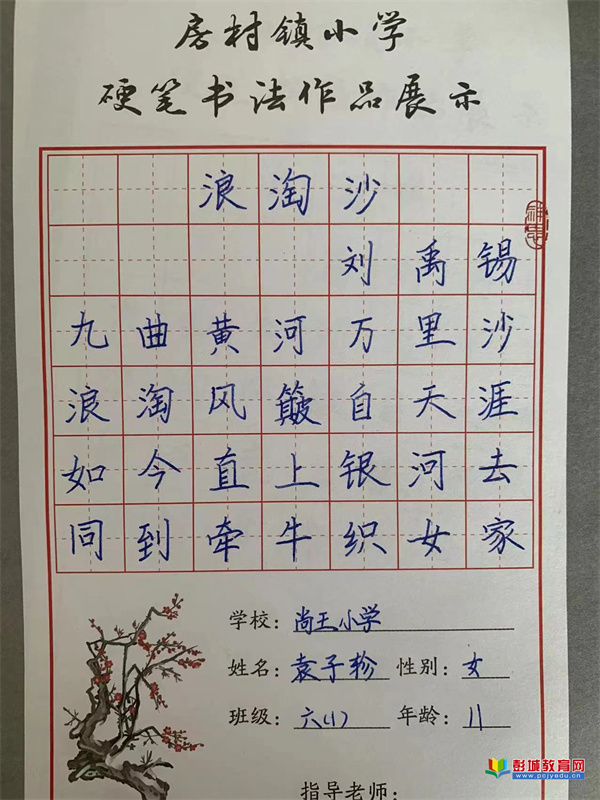 房村镇小学
硬笔书法作品展示
浪淘沙
刘禹锡
九曲黄河万里沙
浪淘风簸自天涯
如今直上银河去
同到牵牛织女家
学校：尚王小学
姓名：袁子轸 性别：女
班级：六(1) 年龄：11
指导老师：
彭城教育网
www.pcjyedu.cn